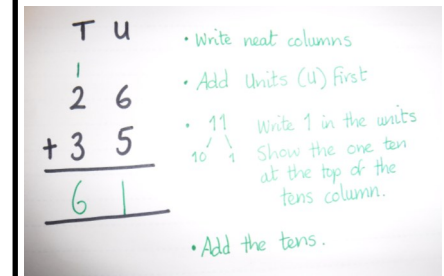 T U
1
2 6
+ 3 5
6 1
• Write neat columns
• Add Units (U) first
• 11 Write 1 in the units
10 1 Show the one ten
at the top of the
tens column.
• Add the tens.